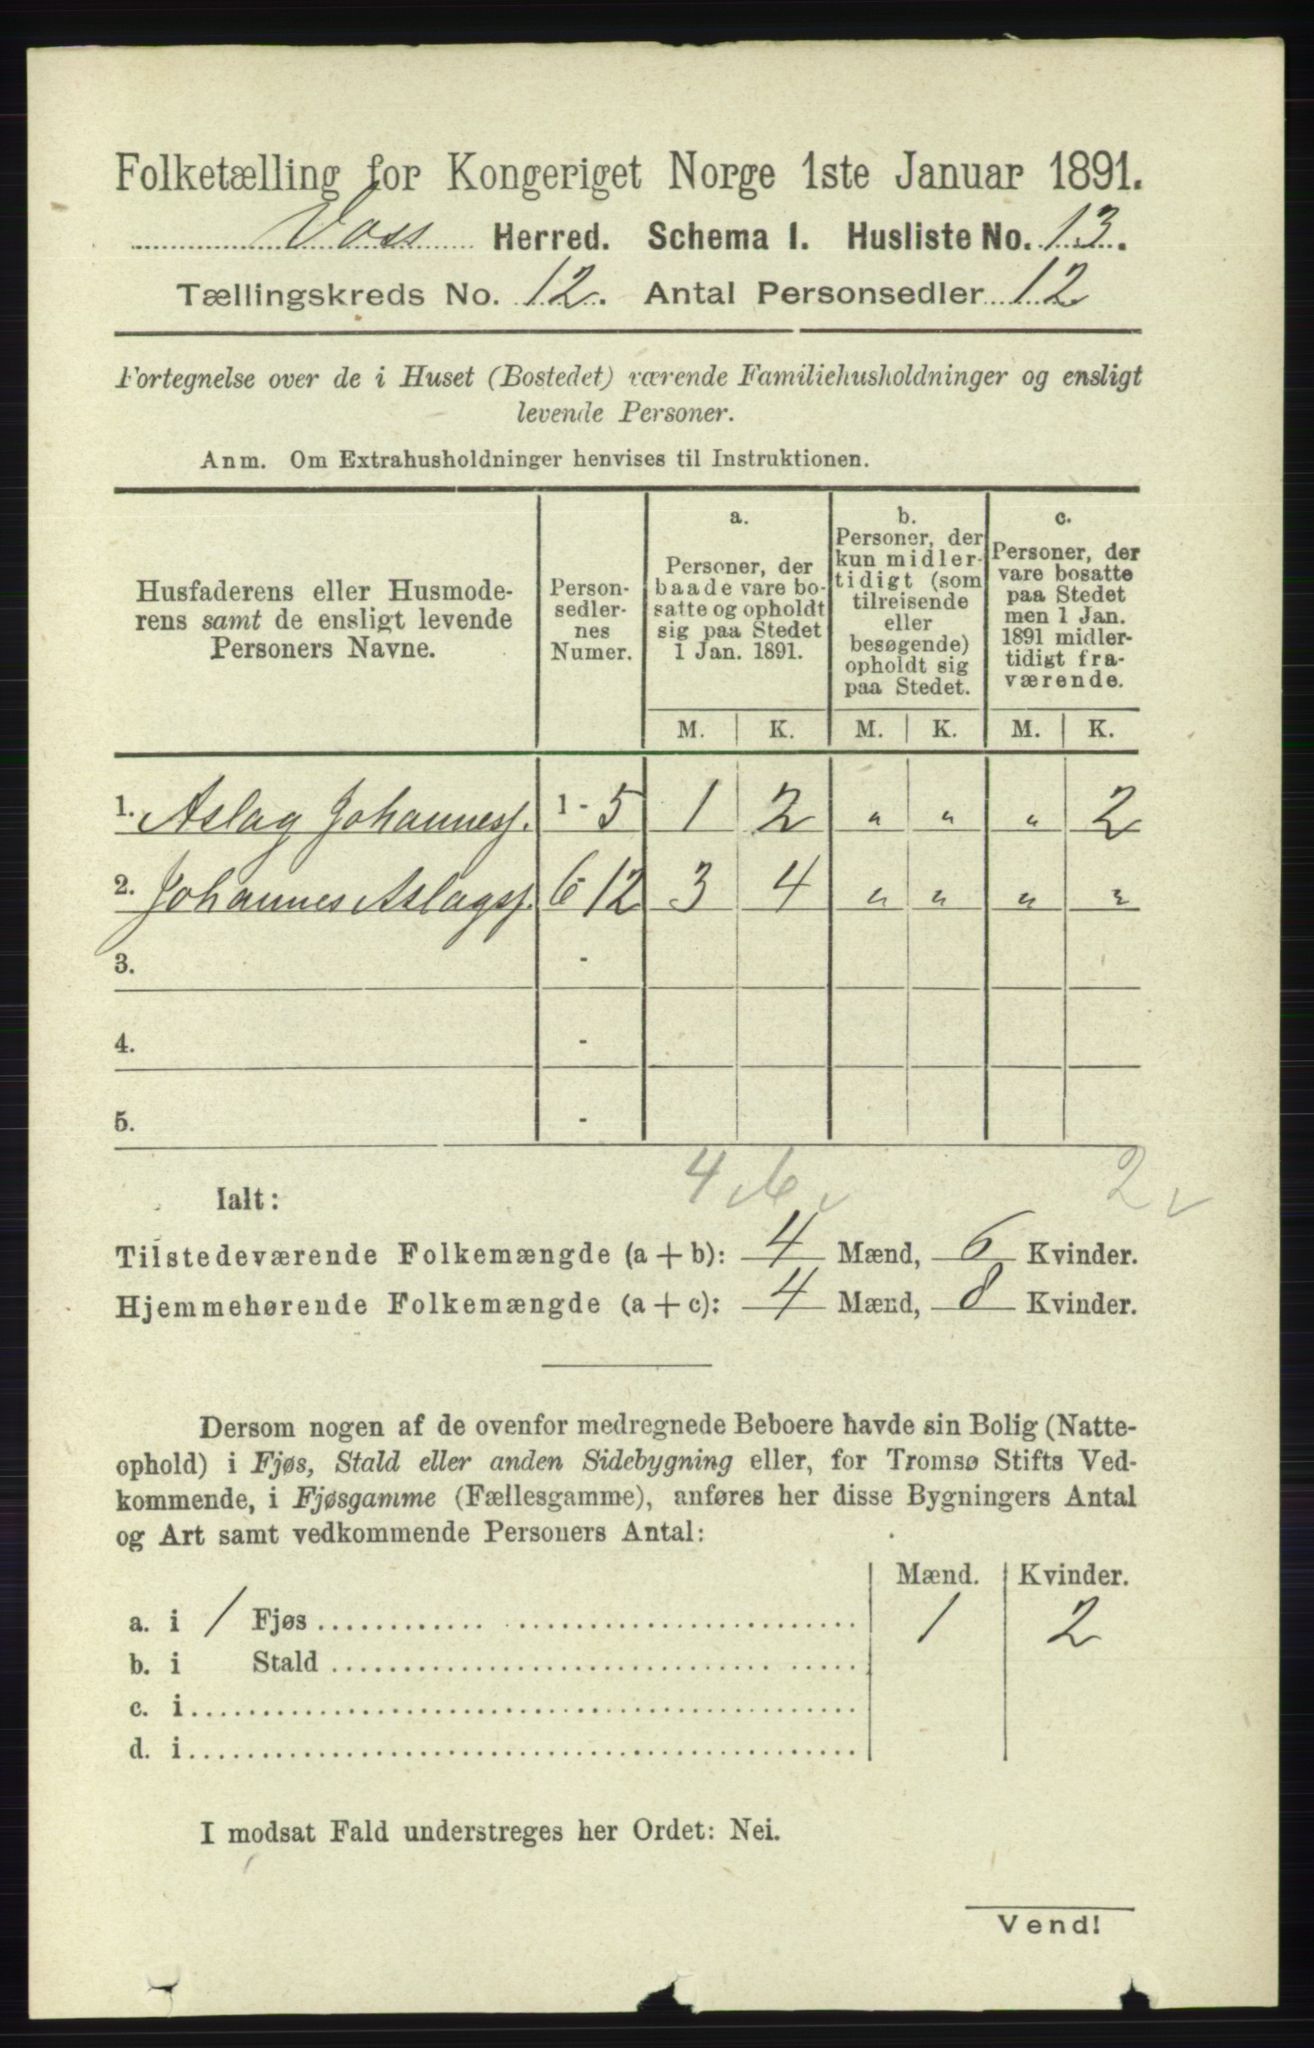 Folketælling for Kongeriget Norge 1ste Januar 1891.
Voss Herred. Schema I. Husliste No. 13.
Tællingskreds No. 12. Antal Personsedler 12
Fortegnelse over de i Huset (Bostedet) værende Familiehusholdninger og ensligt
levende Personer.
Anm. Om Extrahusholdninger henvises til Instruktionen.
Husfaderens eller Husmode-
rens samt de ensligt levende
Personers Navne.
Person-
sedler-
nes
Numer.
a.
Personer, der
baade vare bo-
satte og opholdt
sig paa Stedet
1 Jan. 1891.
b.
Personer, der
kun midler-
tidigt (som
tilreisende
eller
besøgende)
opholdt sig
paa Stedet.
c.
Personer, der
vare bosatte
paa Stedet
men 1 Jan.
1891 midler-
tidigt fra-
værende.
M. K. M. K. M. K.
1. Aslag Johanness. 1 - 5 1 2 " " " 2
2. Johannes Aslagss. 6 - 12 3 4 " " " "
3. -
4. -
5. -
4 6 2
Ialt:
Tilstedeværende Folkemængde (a + b): 4 Mænd, 6 Kvinder.
Hjemmehørende Folkemængde (a + c): 4 Mænd, 8 Kvinder.
Dersom nogen af de ovenfor medregnede Beboere havde sin Bolig (Natte-
ophold) i Fjøs, Stald eller anden Sidebygning eller, for Tromsø Stifts Ved-
kommende, i Fjøsgamme (Fællesgamme), anføres her disse Bygningers Antal
og Art samt vedkommende Personers Antal:
Mænd. Kvinder.
a. i 1 Fjøs 1 2
b. i Stald
c. i
d. i
I modsat Fald understreges her Ordet: Nei.
Vend!